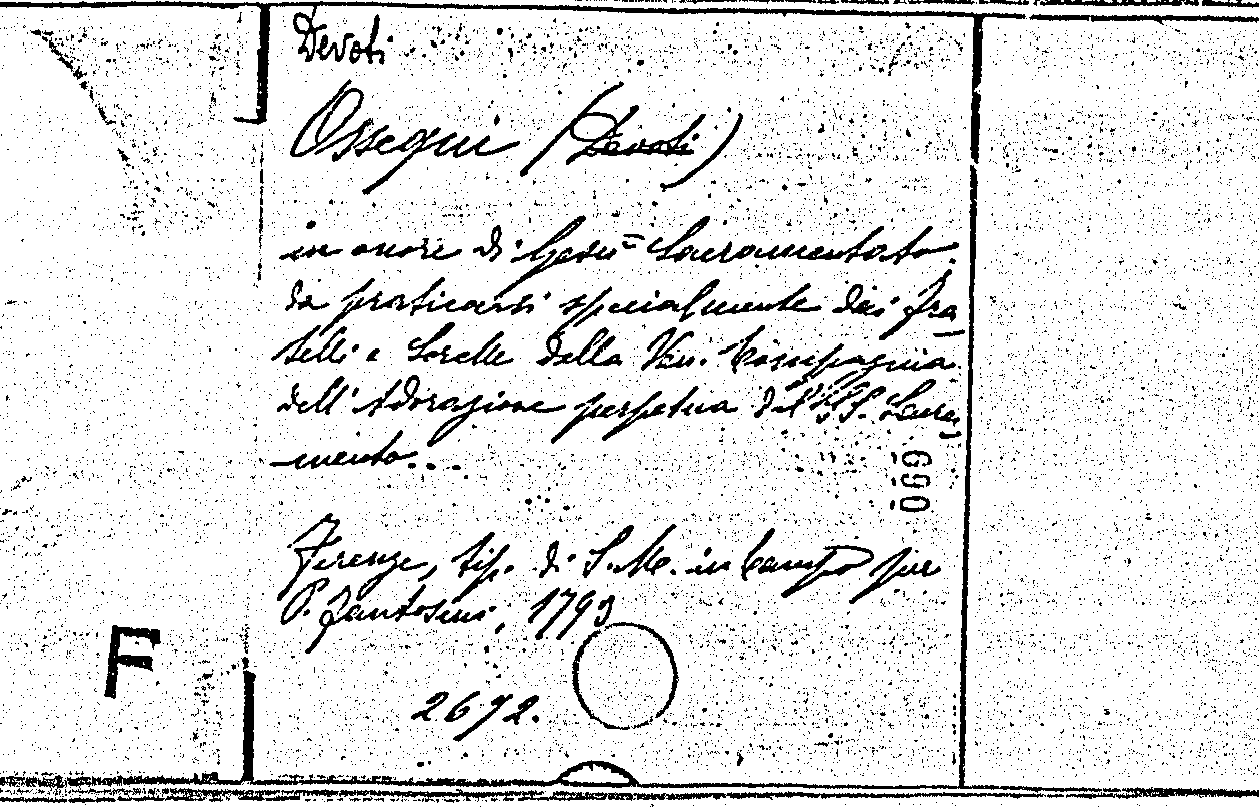 Devoti
Ossequi (Devoti)
in onore di Gesù Sacramentato
da praticarsi specialmente dai fra
telli e Sorelle della Ven. Compagnia
dell'Adorazione perpetua del SS. Sacra
mento...
069
Firenze, tip. di S. M. in Campo per
P. Fantosini, 1793
F
2672.